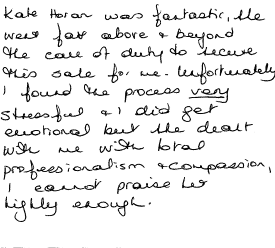 Kate Horan was fantastic, she
went far above & beyond
the care of duty to secure
this sale for me. Unfortunately
I found the process very
stressful & I did get
emotional but she dealt
with me with total
professionalism & compassion,
I cannot praise her
highly enough.